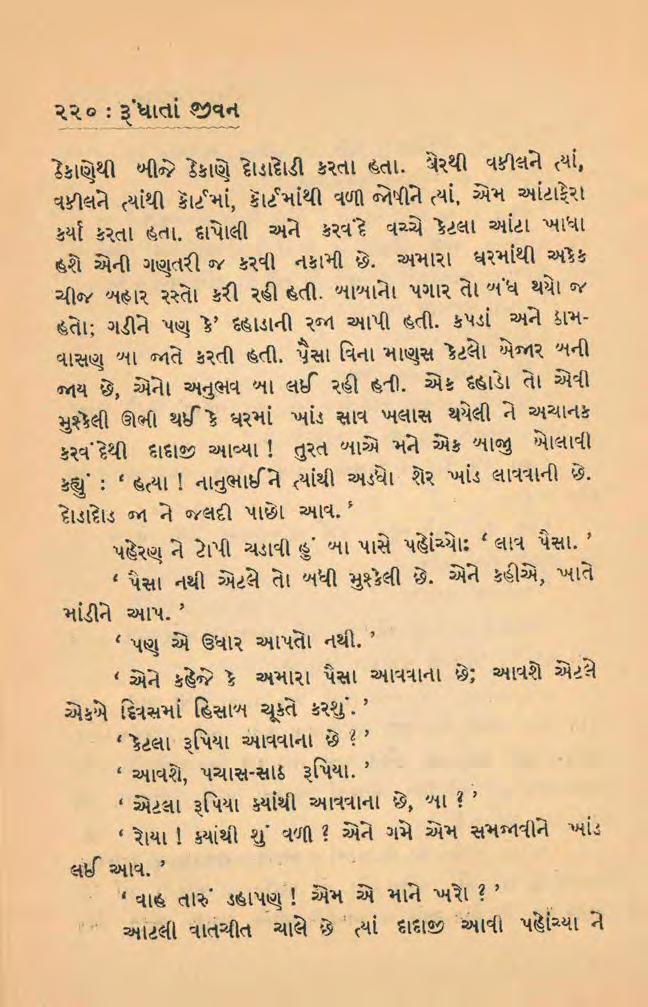 ૨૨૦ : રૂંધાતાં જીવન
ઠેકાણેથી બીજે ઠેકાણે દોડાદોડી કરતા હતા. ઘેરથી વકીલને ત્યાં,
વકીલને ત્યાંથી કૉર્ટમાં, કૉર્ટમાંથી વળી જોષીને ત્યાં, એમ આંટાફેરા
કર્યા કરતા હતા. દાપોલી અને કરવંદે વચ્ચે કેટલા આંટા ખાધા
હશે એની ગણતરી જ કરવી નકામી છે. અમારા ઘરમાંથી અકેક
ચીજ બહાર રસ્તો કરી રહી હતી. બાબાનો પગાર તો બંધ થયો જ
હતો; ગડીને પણ કે’ દહાડાની રજા આપી હતી. કપડાં અને ઠામ-
વાસણ બા જાતે કરતી હતી. પૈસા વિના માણસ કેટલો બેજાર બની
જાય છે, એનો અનુભવ બા લઈ રહી હતી. એક દહાડો તો એવી
મુશ્કેલી ઊભી થઈ કે ઘરમાં ખાંડ સાવ ખલાસ થયેલી ને અચાનક
કરવંદેથી દાદાજી આવ્યા ! તુરત બાએ મને એક બાજુ બોલાવી
કહ્યું : ‘ હત્યા ! નાનુભાઈને ત્યાંથી અડધો શેર ખાંડ લાવવાની છે.
દોડાદોડ જા ને જલદી પાછો આવ. ’
પહેરણ ને ટોપી ચડાવી હું બા પાસે પહોંચ્યો: ‘ લાવ પૈસા. ’
‘ પૈસા નથી એટલે તો બધી મુશ્કેલી છે. એને કહીએ, ખાતે
માંડીને આપ. ’
‘ પણ એ ઉધાર આપતો નથી. ’
‘ એને કહેજે કે અમારા પૈસા આવવાના છે; આવશે એટલે
એકબે દિવસમાં હિસાબ ચૂકતે કરશું. ’
‘ કેટલા રૂપિયા આવવાના છે ? ’
‘ આવશે, પચાસ-સાઠ રૂપિયા. ’
‘ એટલા રૂપિયા કયાંથી આવવાના છે, બા ? ’
‘ રોયા ! કયાંથી શું વળી ? એને ગમે એમ સમજાવીને ખાંડ
લઈ આવ. ’
‘ વાહ તારું ડહાપણ ! એમ એ માને ખરો ? ’
આટલી વાતચીત ચાલે છે ત્યાં દાદાજી આવી પહોંચ્યા ને